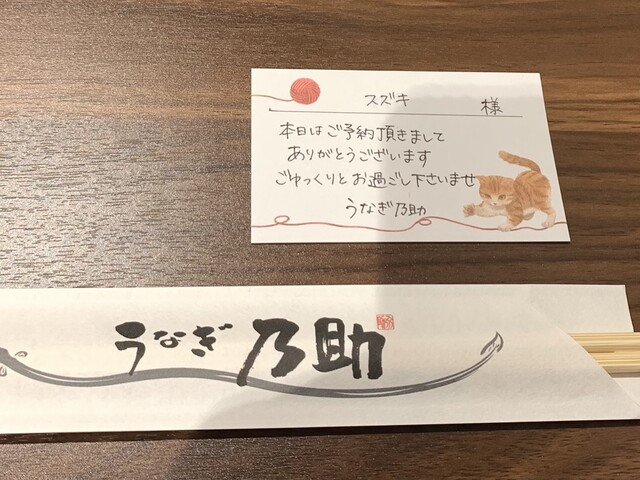 スズキ 様
本日はご予約頂きまして
ありがとうございます
ごゆっくりとお過ごし下さいませ
うなぎ乃助
うなぎ乃助